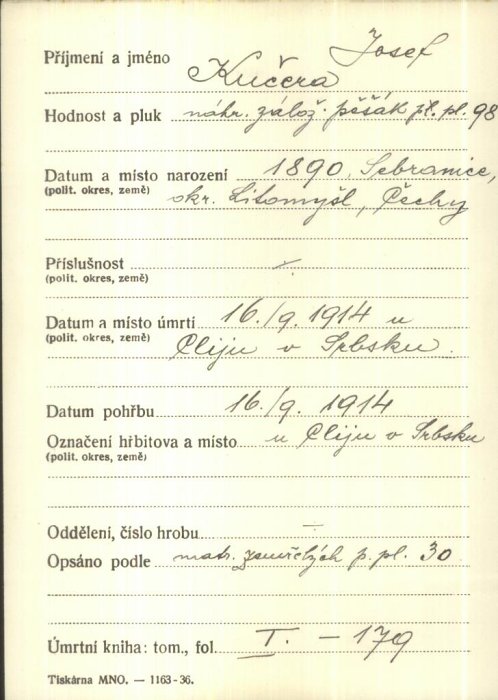 Josef
Příjmení a jméno Kučera
Hodnost a pluk náhr. zálož. pěšák pl. pl. 98
Datum a místo narození 1890, Sebranice,
(polit. okres, země) okr. Litomyšl, Čechy
Příslušnost /.
(polit. okres, země)
Datum a místo úmrtí 16./9. 1914 u
(polit. okres, země) Cliju v Srbsku.
Datum pohřbu 16./9. 1914
Označení hřbitova a místo u Cliju v Srbsku
(polit. okres, země)
Oddělení, číslo hrobu ÷
Opsáno podle matr. zemřelých p. pl. 30
Úmrtní kniha: tom., fol. I. – 179
Tiskárna MNO. — 1163-36.